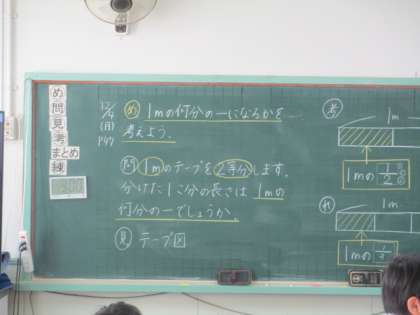 め
問
見
考
まとめ
練
12/4
(月)
P47
め 1mの何分の一になるかを
考えよう。
問 1mのテープを2等分します。
分けた1こ分の長さは1mの
何分の一でしょうか。
見 テープ図
考
1m
1mの 1/2
れ
1m
1mの